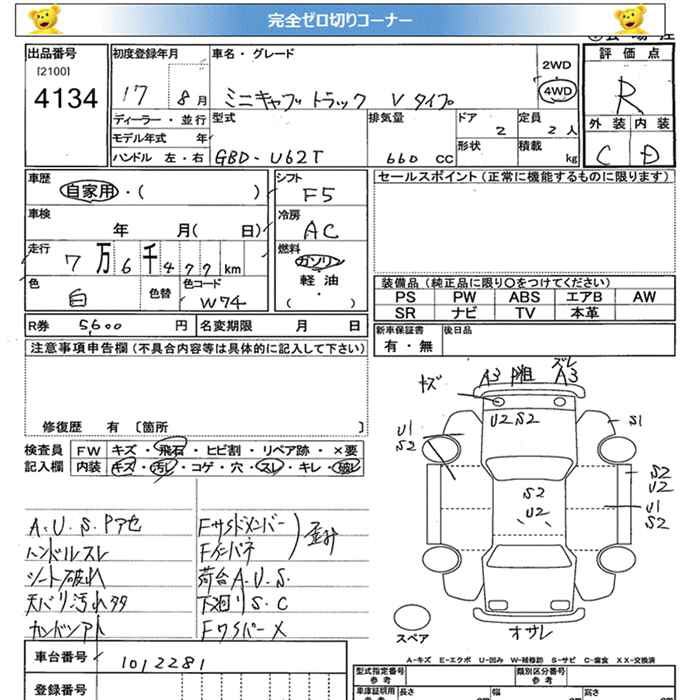 完全ゼロ切りコーナー
出品番号
[2100]
4134
初度登録年月
17 8月
車名・グレード
ミニキャブトラック Vタイプ
2WD
4WD
評価点
R
外装 内装
C D
ディーラー・並行
モデル年式 年
ハンドル 左・右
型式
GBD-U62T
排気量
660 cc
ドア
2
形状
定員
2人
積載
kg
車歴
自家用・( )
車検
年 月( 日)
走行
7万6千477km
色
白
色替
色コード
W74
シフト
F5
冷房
AC
燃料
ガソリン
軽油
・
( )
セールスポイント(正常に機能するものに限ります)
装備品(純正品に限り○をつけてください)
PS PW ABS エアB AW
SR ナビ TV 本革
R券 5600円
名変期限 月 日
新車保証書
有・無
後日品
注意事項申告欄(不具合内容等は具体的に記入して下さい)
修復歴 有 [箇所
検査員
記入欄
FW キズ・飛石・ヒビ割・リペア跡・×要
内装 キズ・汚レ・コゲ・穴・スレ・キレ・破レ
A.U.S.Pアセ
ハンドルスレ
シート破れ
天バリ汚れタタ
Fサイドメンバー
歪み
荷台A.U.S.
下廻りS.C
FワイパーX
キズ
A3
ズレ
A3
U2 S2
U1
S2
S1
S2
U2
S2
U2
U1
S2
オサレ
スペア
A-キズ E-エクボ U-凹み W-補修跡 S-サビ C-腐食 XX-交換済
車台番号
1012281
登録番号
型式指定番号
参考
類別区分番号
参考
車庫証明用
参考
長さ
cm
幅
cm
高さ
cm